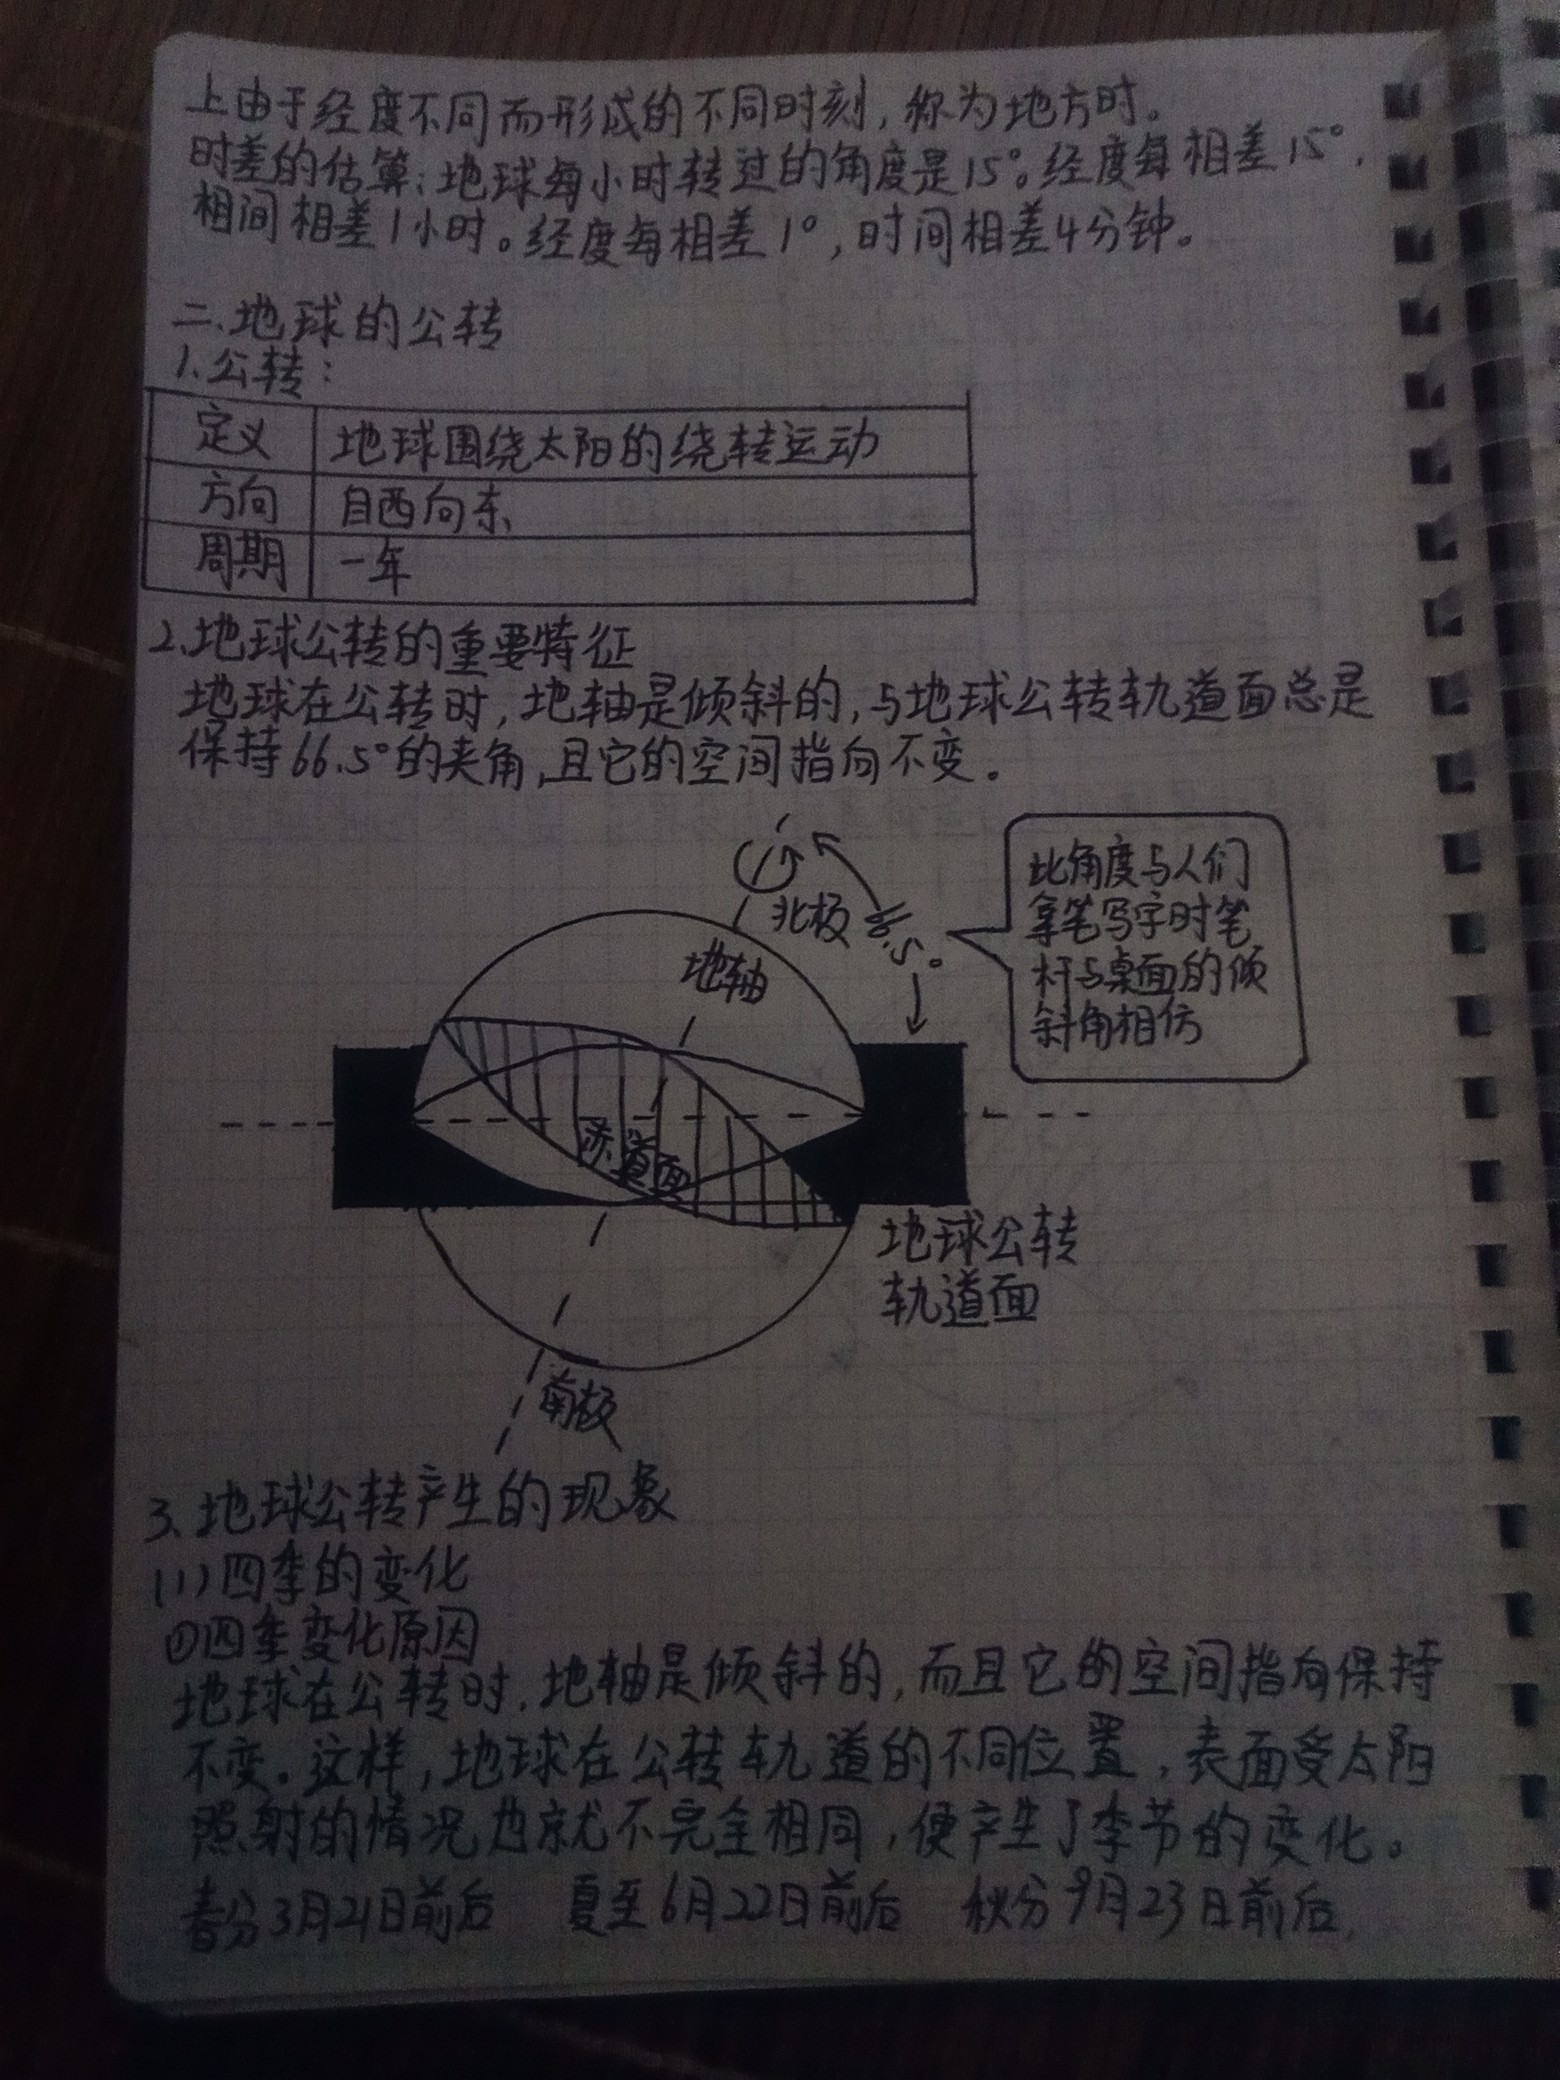 上由于经度不同而形成的不同时刻，称为地方时。
时差的估算：地球每小时转过的角度是15°。经度每相差15°，
相间相差1小时。经度每相差1°，时间相差4分钟。
二、地球的公转
1.公转：
定义 地球围绕太阳的绕转运动
方向 自西向东
周期 一年
2.地球公转的重要特征
地球在公转时，地轴是倾斜的，与地球公转轨道面总是
保持66.5°的夹角，且它的空间指向不变。
北极
66.5°
地轴
此角度与人们
拿笔写字时笔
杆与桌面的倾
斜角相仿
赤道面
地球公转
轨道面
南极
3、地球公转产生的现象
(1)四季的变化
①四季变化原因
地球在公转时，地轴是倾斜的，而且它的空间指向保持
不变。这样，地球在公转轨道的不同位置，表面受太阳
照射的情况也就不完全相同，便产生了季节的变化。
春分3月21日前后 夏至6月22日前后 秋分9月23日前后，